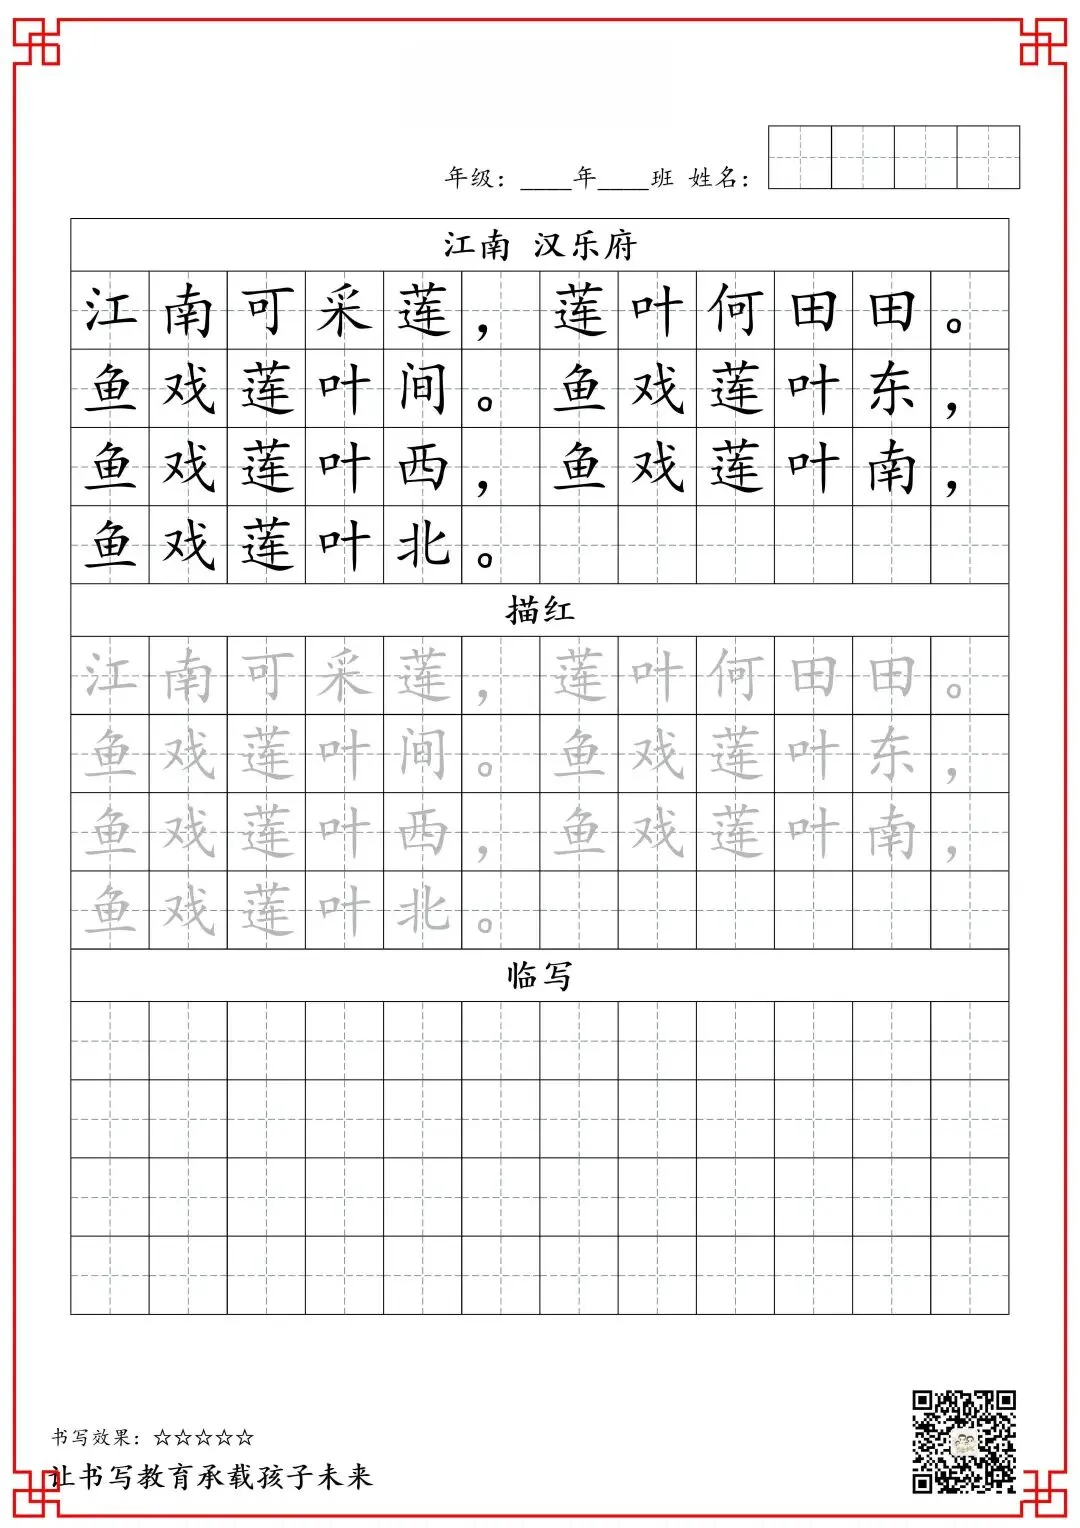 年级：____年____班 姓名：
江南 汉乐府
江南可采莲，莲叶何田田。
鱼戏莲叶间。鱼戏莲叶东，
鱼戏莲叶西，鱼戏莲叶南，
鱼戏莲叶北。
描红
江南可采莲，莲叶何田田。
鱼戏莲叶间。鱼戏莲叶东，
鱼戏莲叶西，鱼戏莲叶南，
鱼戏莲叶北。
临写
书写效果：☆☆☆☆☆
让书写教育承载孩子未来